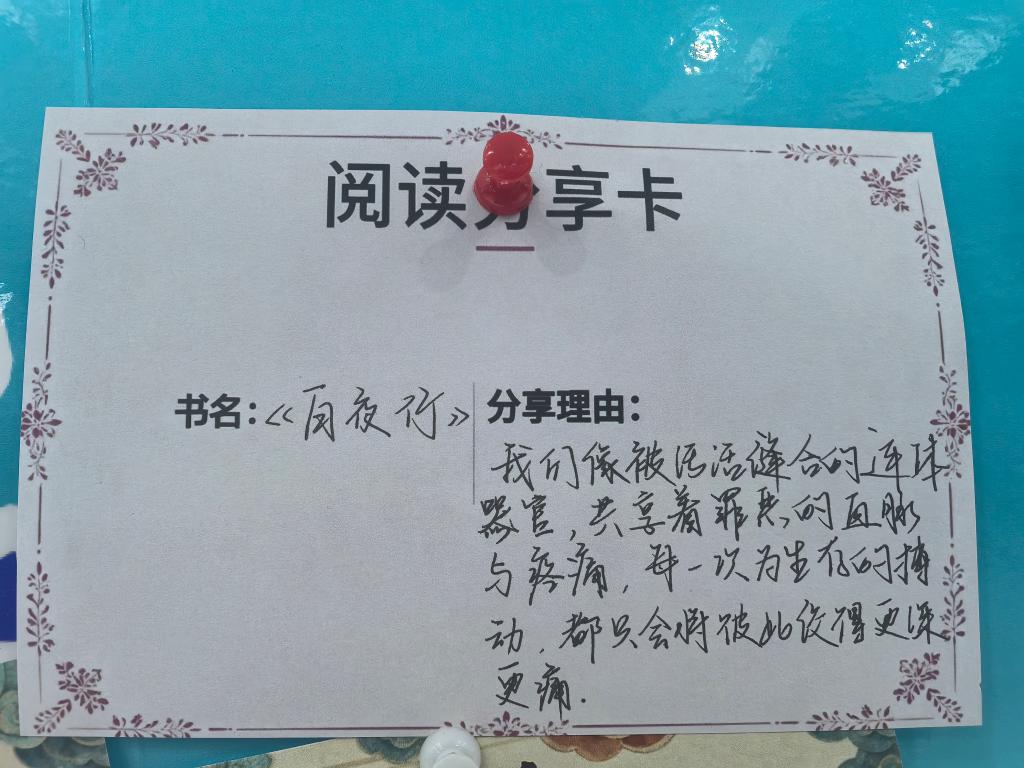 阅读分享卡
书名：《白夜行》
分享理由：
我们像被活活缝合的连体
器官，共享着罪恶的血脉
与疼痛，每一次为生存的搏
动，都只会将彼此绞得更深
更痛.